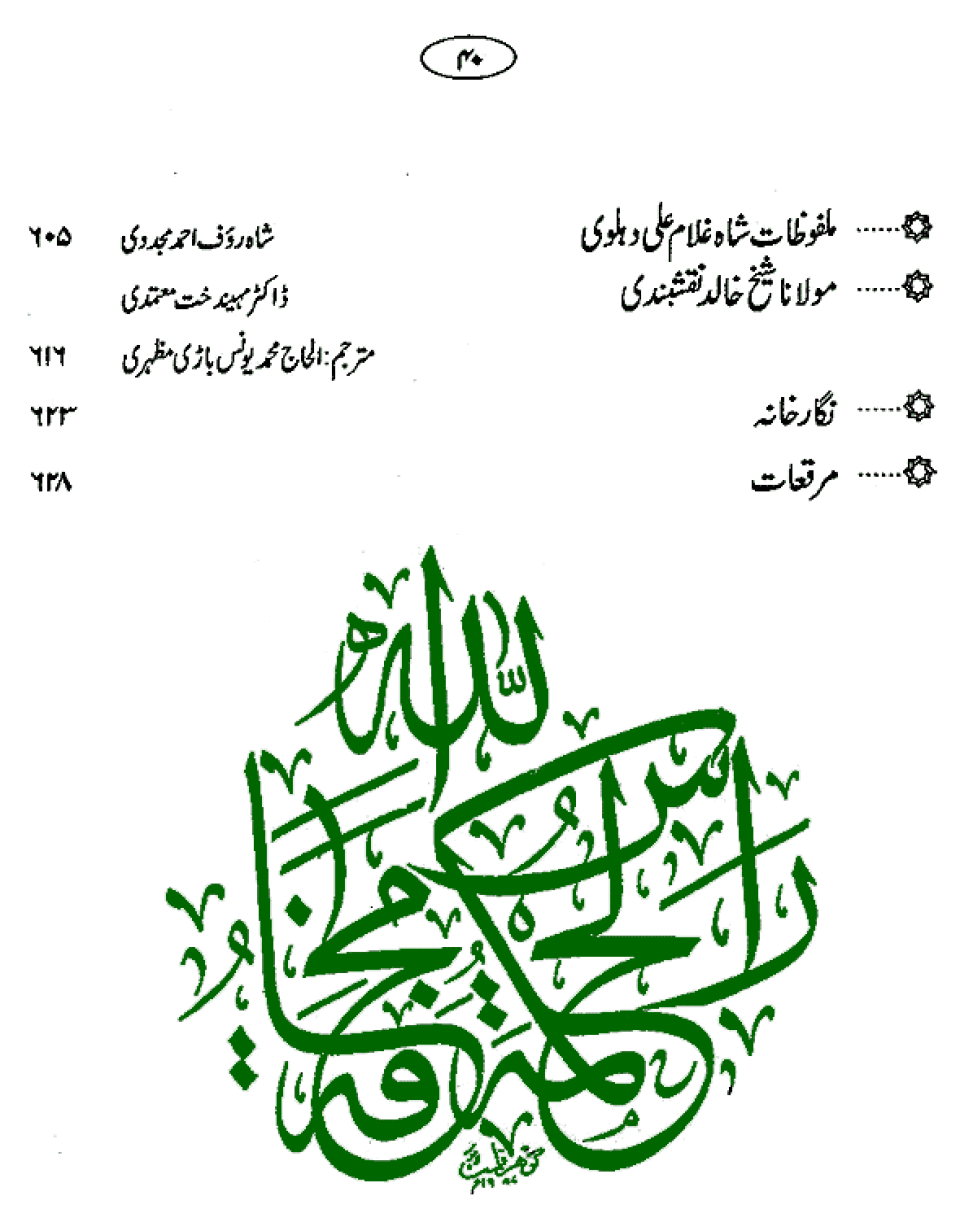 ۴۰
ملفوظات شاہ غلام علی دہلوی ...... شاہ رؤف احمد مجددی ۶۰۵
مولانا شیخ خالد نقشبندی ...... ڈاکٹر مہیندخت معتمدی
مترجم: الحاج محمد یونس باڑی مظہری ۶۱۶
نگارخانہ ...... ۶۲۳
مرقعات ...... ۶۲۸
راس الحکمة مخافة الله